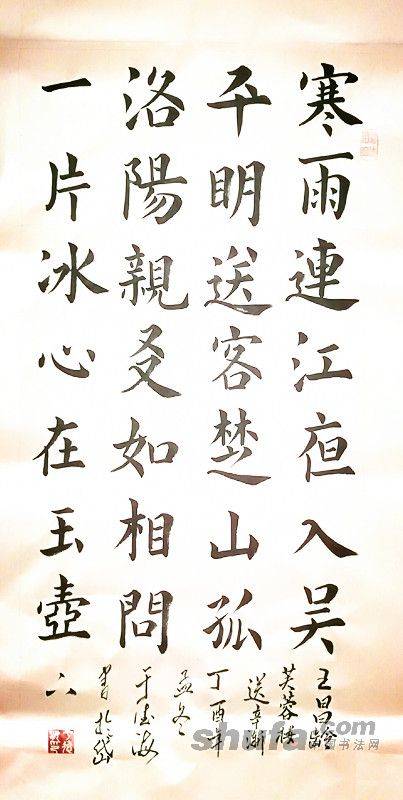 寒雨連江亱入吴
平明送客楚山孤
洛陽親友如相問
一片冰心在玉壺
王昌齡
芙蓉樓
送辛漸
丁酉年
孟冬
書於岱
下
shufa.com
书法网